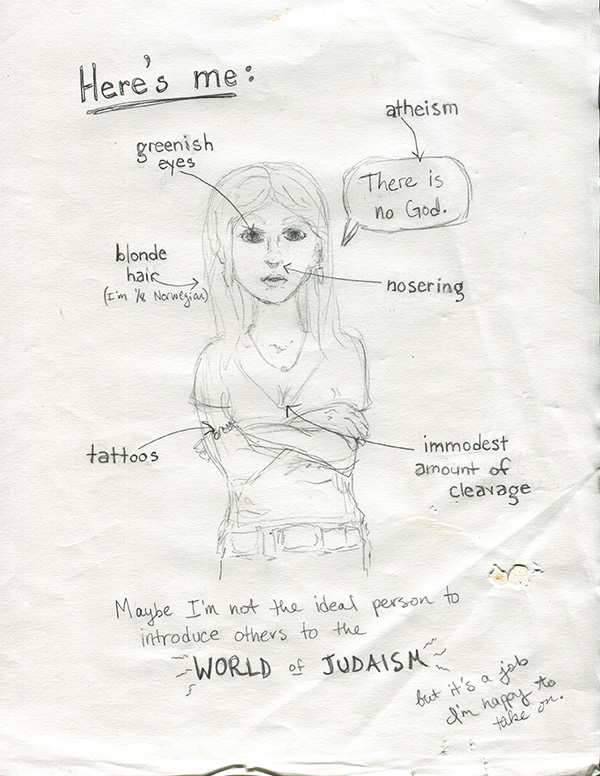 Here's me:
atheism
There is
no God.
greenish
eyes
blonde
hair
(I'm 1/8 Norwegian)
nosering
tattoos
immodest
amount of
cleavage
Maybe I'm not the ideal person to
introduce others to the
WORLD of JUDAISM
but it's a job
I'm happy to
take on.